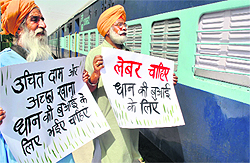 उचित दाम और
अच्छा खाना
धान की बुआई
के लिए
भईए चाहिए
लेबर चाहिए
धान की बुआई
के लिए